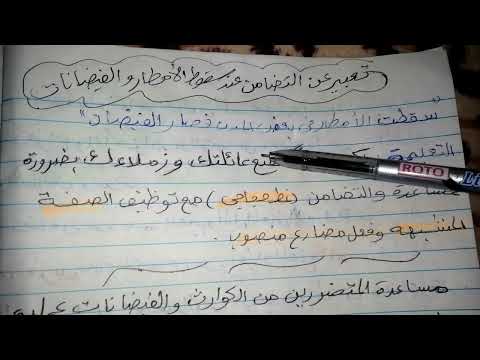 تعبير عن التضامن عند سقوط الأمطار و الفيضانات
"سقطت الأمطار في بعض المدن فصار الفيضان"
التعليمة عائلتك وزملاءك بضرورة
مساعدة والتضامن (نص حجاجي) مع توظيف الصفة
المشبهة وفعل مضارع منصوب.
مساعدة المتضررين من الكوارث والفيضانات
ROTO